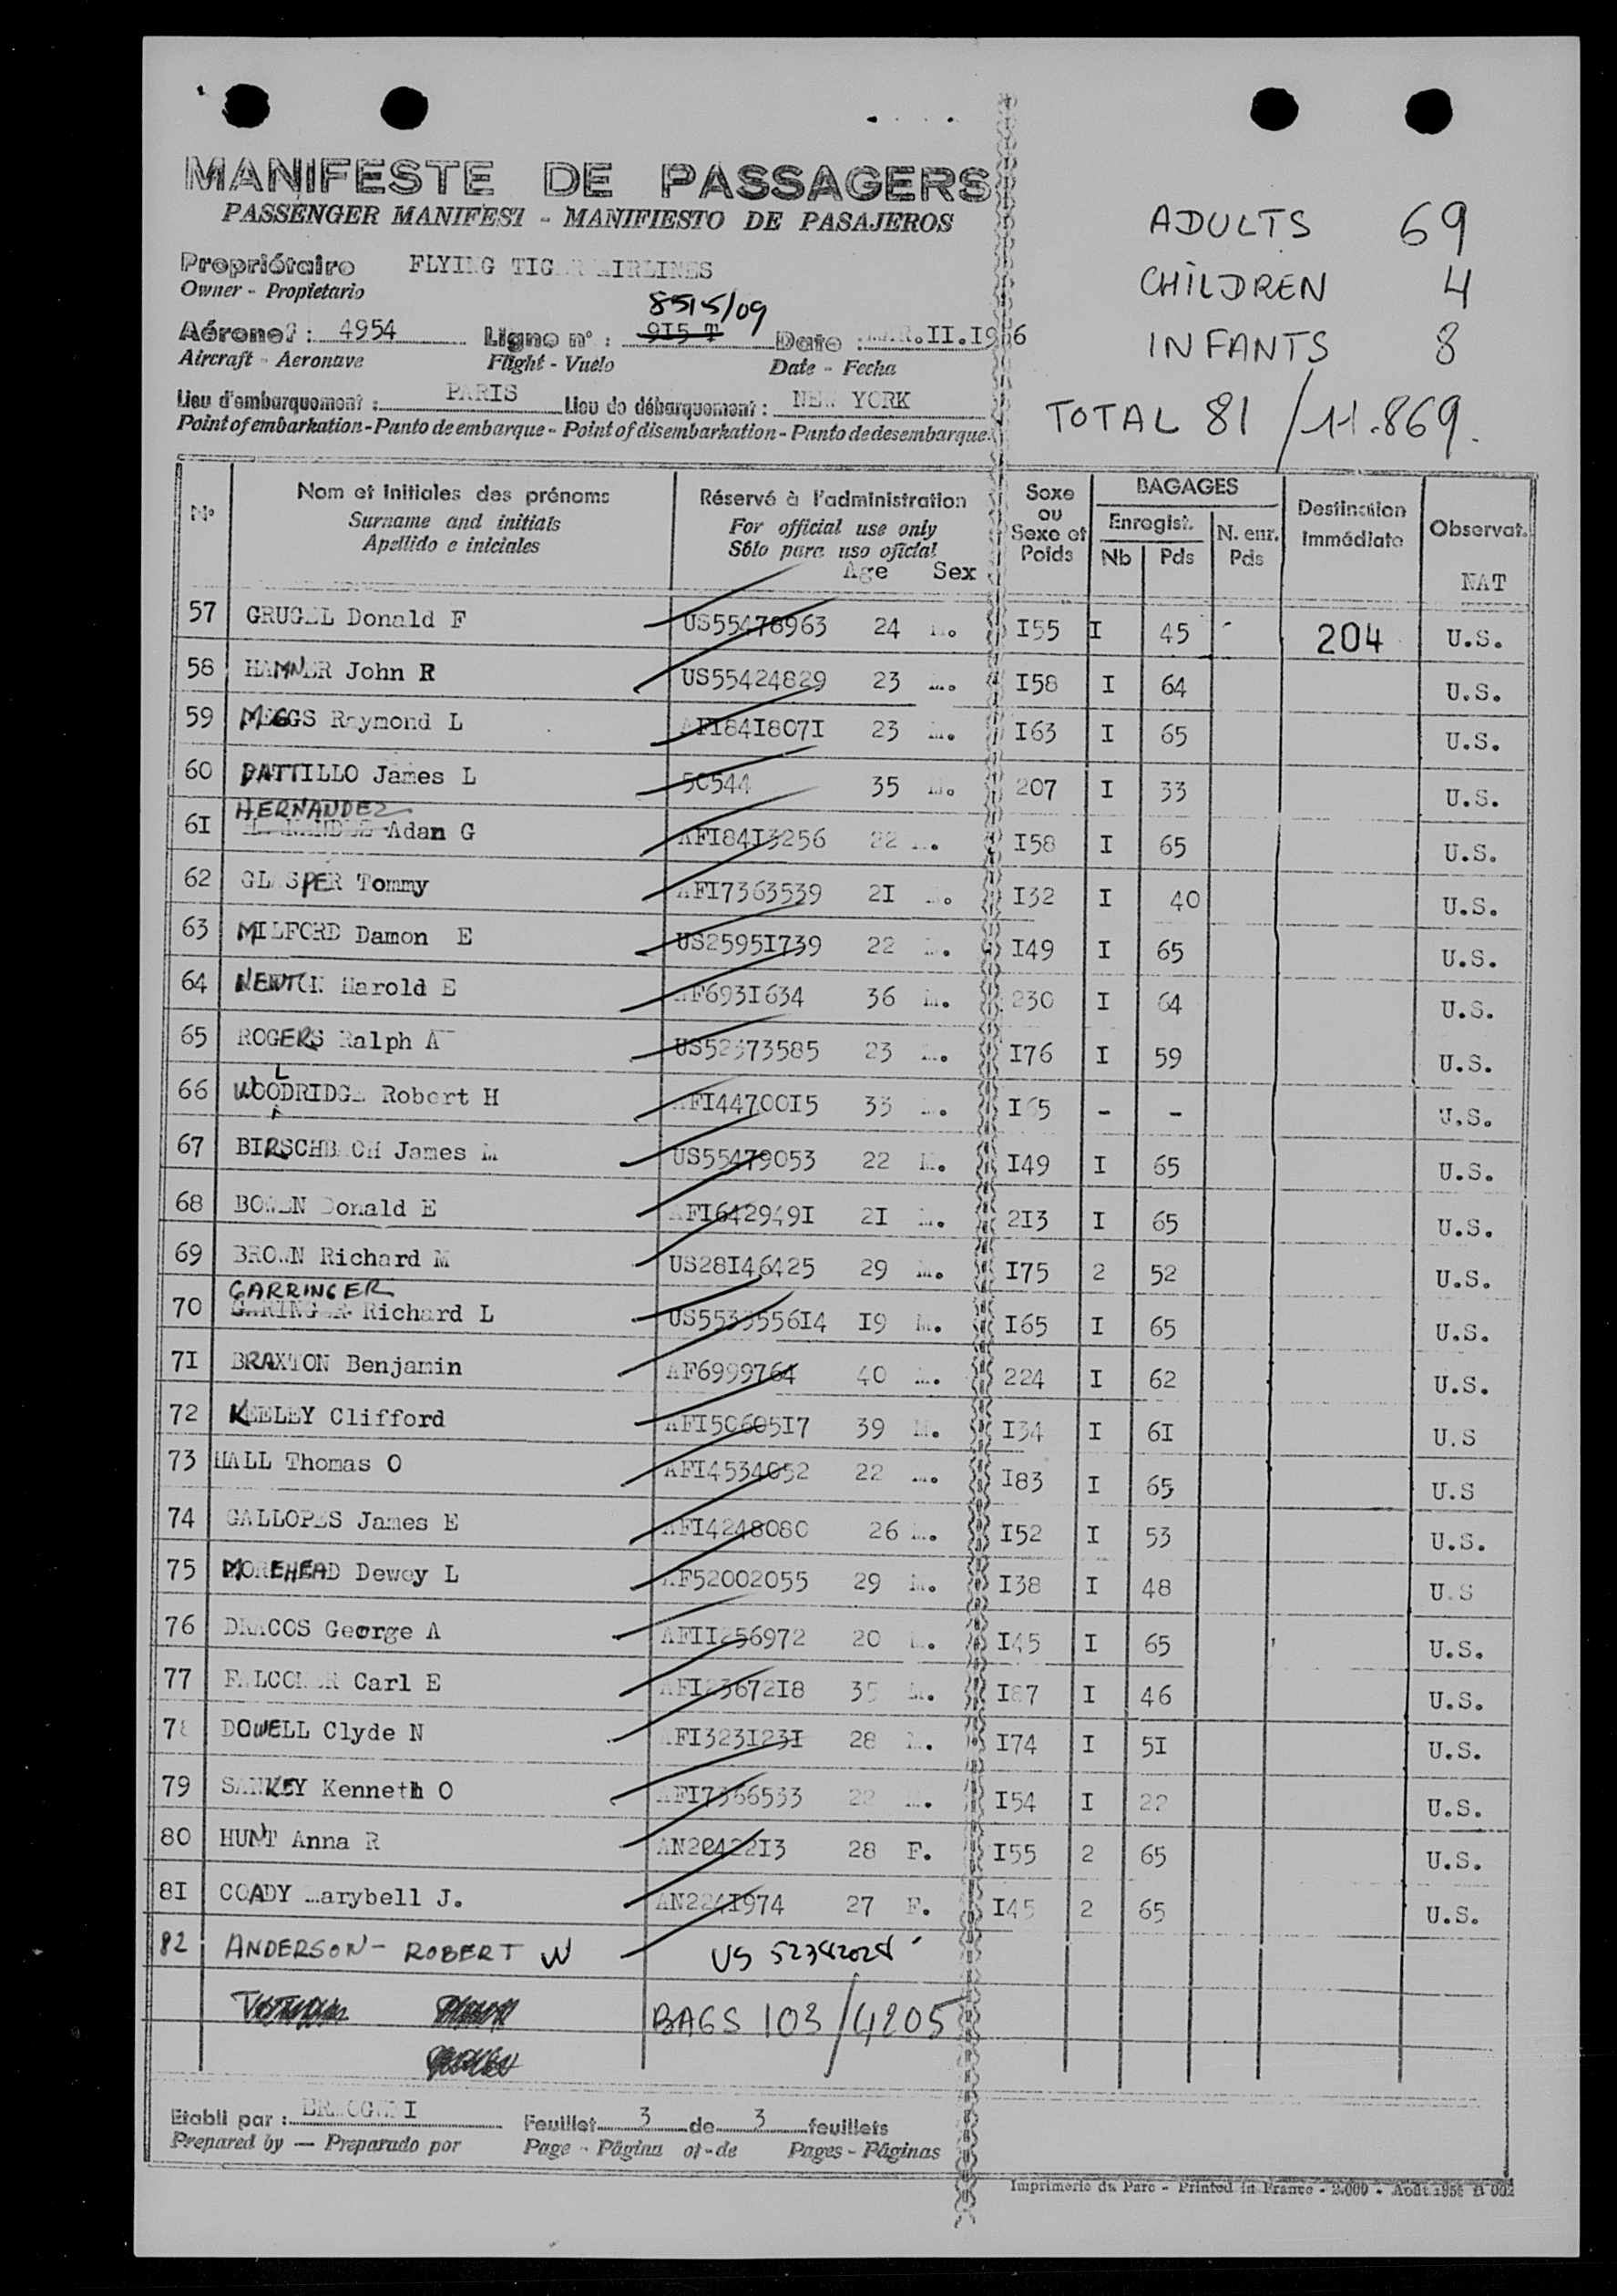 MANIFESTE DE PASSAGERS
PASSENGER MANIFEST - MANIFIESTO DE PASAJEROS
ADULTS 69
CHILDREN 4
INFANTS 8
TOTAL 81 / 11.869.
Propriétaire FLYING TIGER AIRLINES
Owner - Propietario
8515/09
Aéronef : 4954 Ligne n° : 915 T Date : II.I9 6
Aircraft - Aeronave Flight - Vuelo Date - Fecha
Lieu d'embarquement : PARIS Lieu de débarquement : NEW YORK
Point of embarkation - Punto de embarque - Point of disembarkation - Punto de desembarque.
N° Nom et initiales des prénoms Réservé à l'administration Sexe ou Sexe et Poids BAGAGES Destination immédiate Observat.
Surname and initials For official use only Enregist. N. enr.
Apellido e iniciales Sólo para uso oficial Nb Pds Pds
Age Sex NAT
57 GRUGEL Donald F US55478963 24 M. I55 I 45 - 204 U.S.
58 HAMNER John R US55424829 23 M. I58 I 64 U.S.
59 MEGGS Raymond L AFI84I807I 23 M. I63 I 65 U.S.
60 PATTILLO James L 50544 35 M. 207 I 33 U.S.
HERNANDEZ
6I Adan G AFI84I3256 22 M. I58 I 65 U.S.
62 GLASPER Tommy AFI7363539 2I M. I32 I 40 U.S.
63 MILFORD Damon E US2595I739 22 M. I49 I 65 U.S.
64 NEWTON Harold E AF693I634 36 M. 230 I 64 U.S.
65 ROGERS Ralph A 23 M. I76 I 59 U.S.
L
66 WOODRIDGE Robert H AFI4470015 33 M. I65 - - U.S.
67 BIRSCHBACH James M US55479053 22 M. I49 I 65 U.S.
68 BOWEN Donald E AFI642949I 2I M. 213 I 65 U.S.
69 BROWN Richard M US28I46425 29 M. I75 2 52 U.S.
GARRINGER
70 GARINGER Richard L I9 M. I65 I 65 U.S.
7I BRAXTON Benjamin AF6999764 40 M. 224 I 62 U.S.
72 KEELEY Clifford AFI50605I7 39 M. I34 I 6I U.S
73 HALL Thomas O AFI4534052 22 M. I83 I 65 U.S
74 GALLOPES James E AFI4248080 26 M. I52 I 53 U.S.
75 MOREHEAD Dewey L AF52002055 29 M. I38 I 48 U.S
76 DRACOS George A AFII256972 20 M. I45 I 65 U.S.
77 FALCONER Carl E AFI23672I8 35 M. I87 I 46 U.S.
78 DOWELL Clyde N AFI323I23I 28 M. I74 I 5I U.S.
79 SANKEY Kenneth O AFI7366533 22 M. I54 I 22 U.S.
80 HUNT Anna R AN22422I3 28 F. I55 2 65 U.S.
8I COADY Marybell J. AN224I974 27 F. I45 2 65 U.S.
82 ANDERSON - ROBERT W US 52342024
BAGS 103/4205
Etabli par : Feuillet 3 de 3 feuillets
Prepared by — Preparado por Page - Página of - de Pages - Páginas
Imprimerie du Parc - Printed in France - 2.000 - Août 1956 B 002